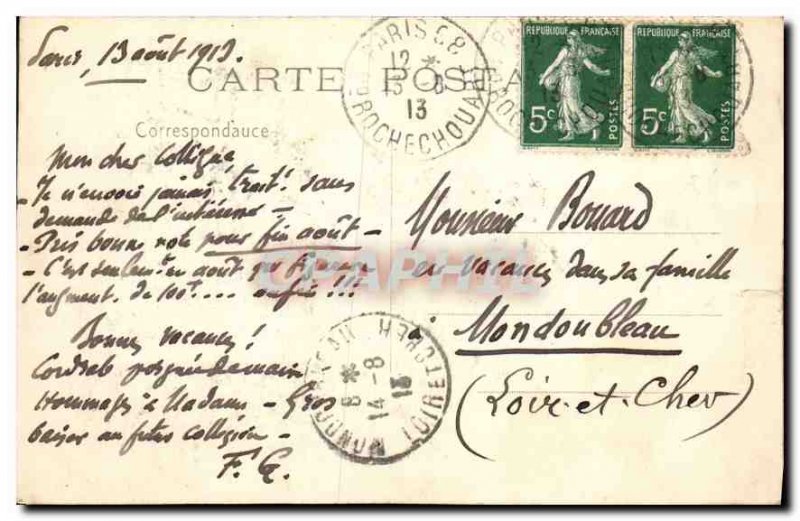 Paris, 13 août 1913.
CARTE POSTA
Correspondance
Mon cher Collègue,
- Je n'envoie jamais traité sans
demande de l'intéressé -
- Pris bonne note pour fin août -
- C'est seulemt en août que figurera
l'augment. de 100f.... enfin!!!
Bonnes vacances!
Cordiale poignée de main
Hommages à Madame - Gros
baiser au futur collégien -
F. G.
PARIS 38
12 *
13 - 8
13
R. ROCHECHOUART
REPUBLIQUE FRANÇAISE
5c
POSTES
REPUBLIQUE FRANÇAISE
5c
POSTES
Monsieur Bouard
en vacances dans sa famille
Mondoubleau
(Loir-et-Cher)
MONDOUBLEAU
8 *
14 - 8
13
LOIR ET CHER
CPAPHIL